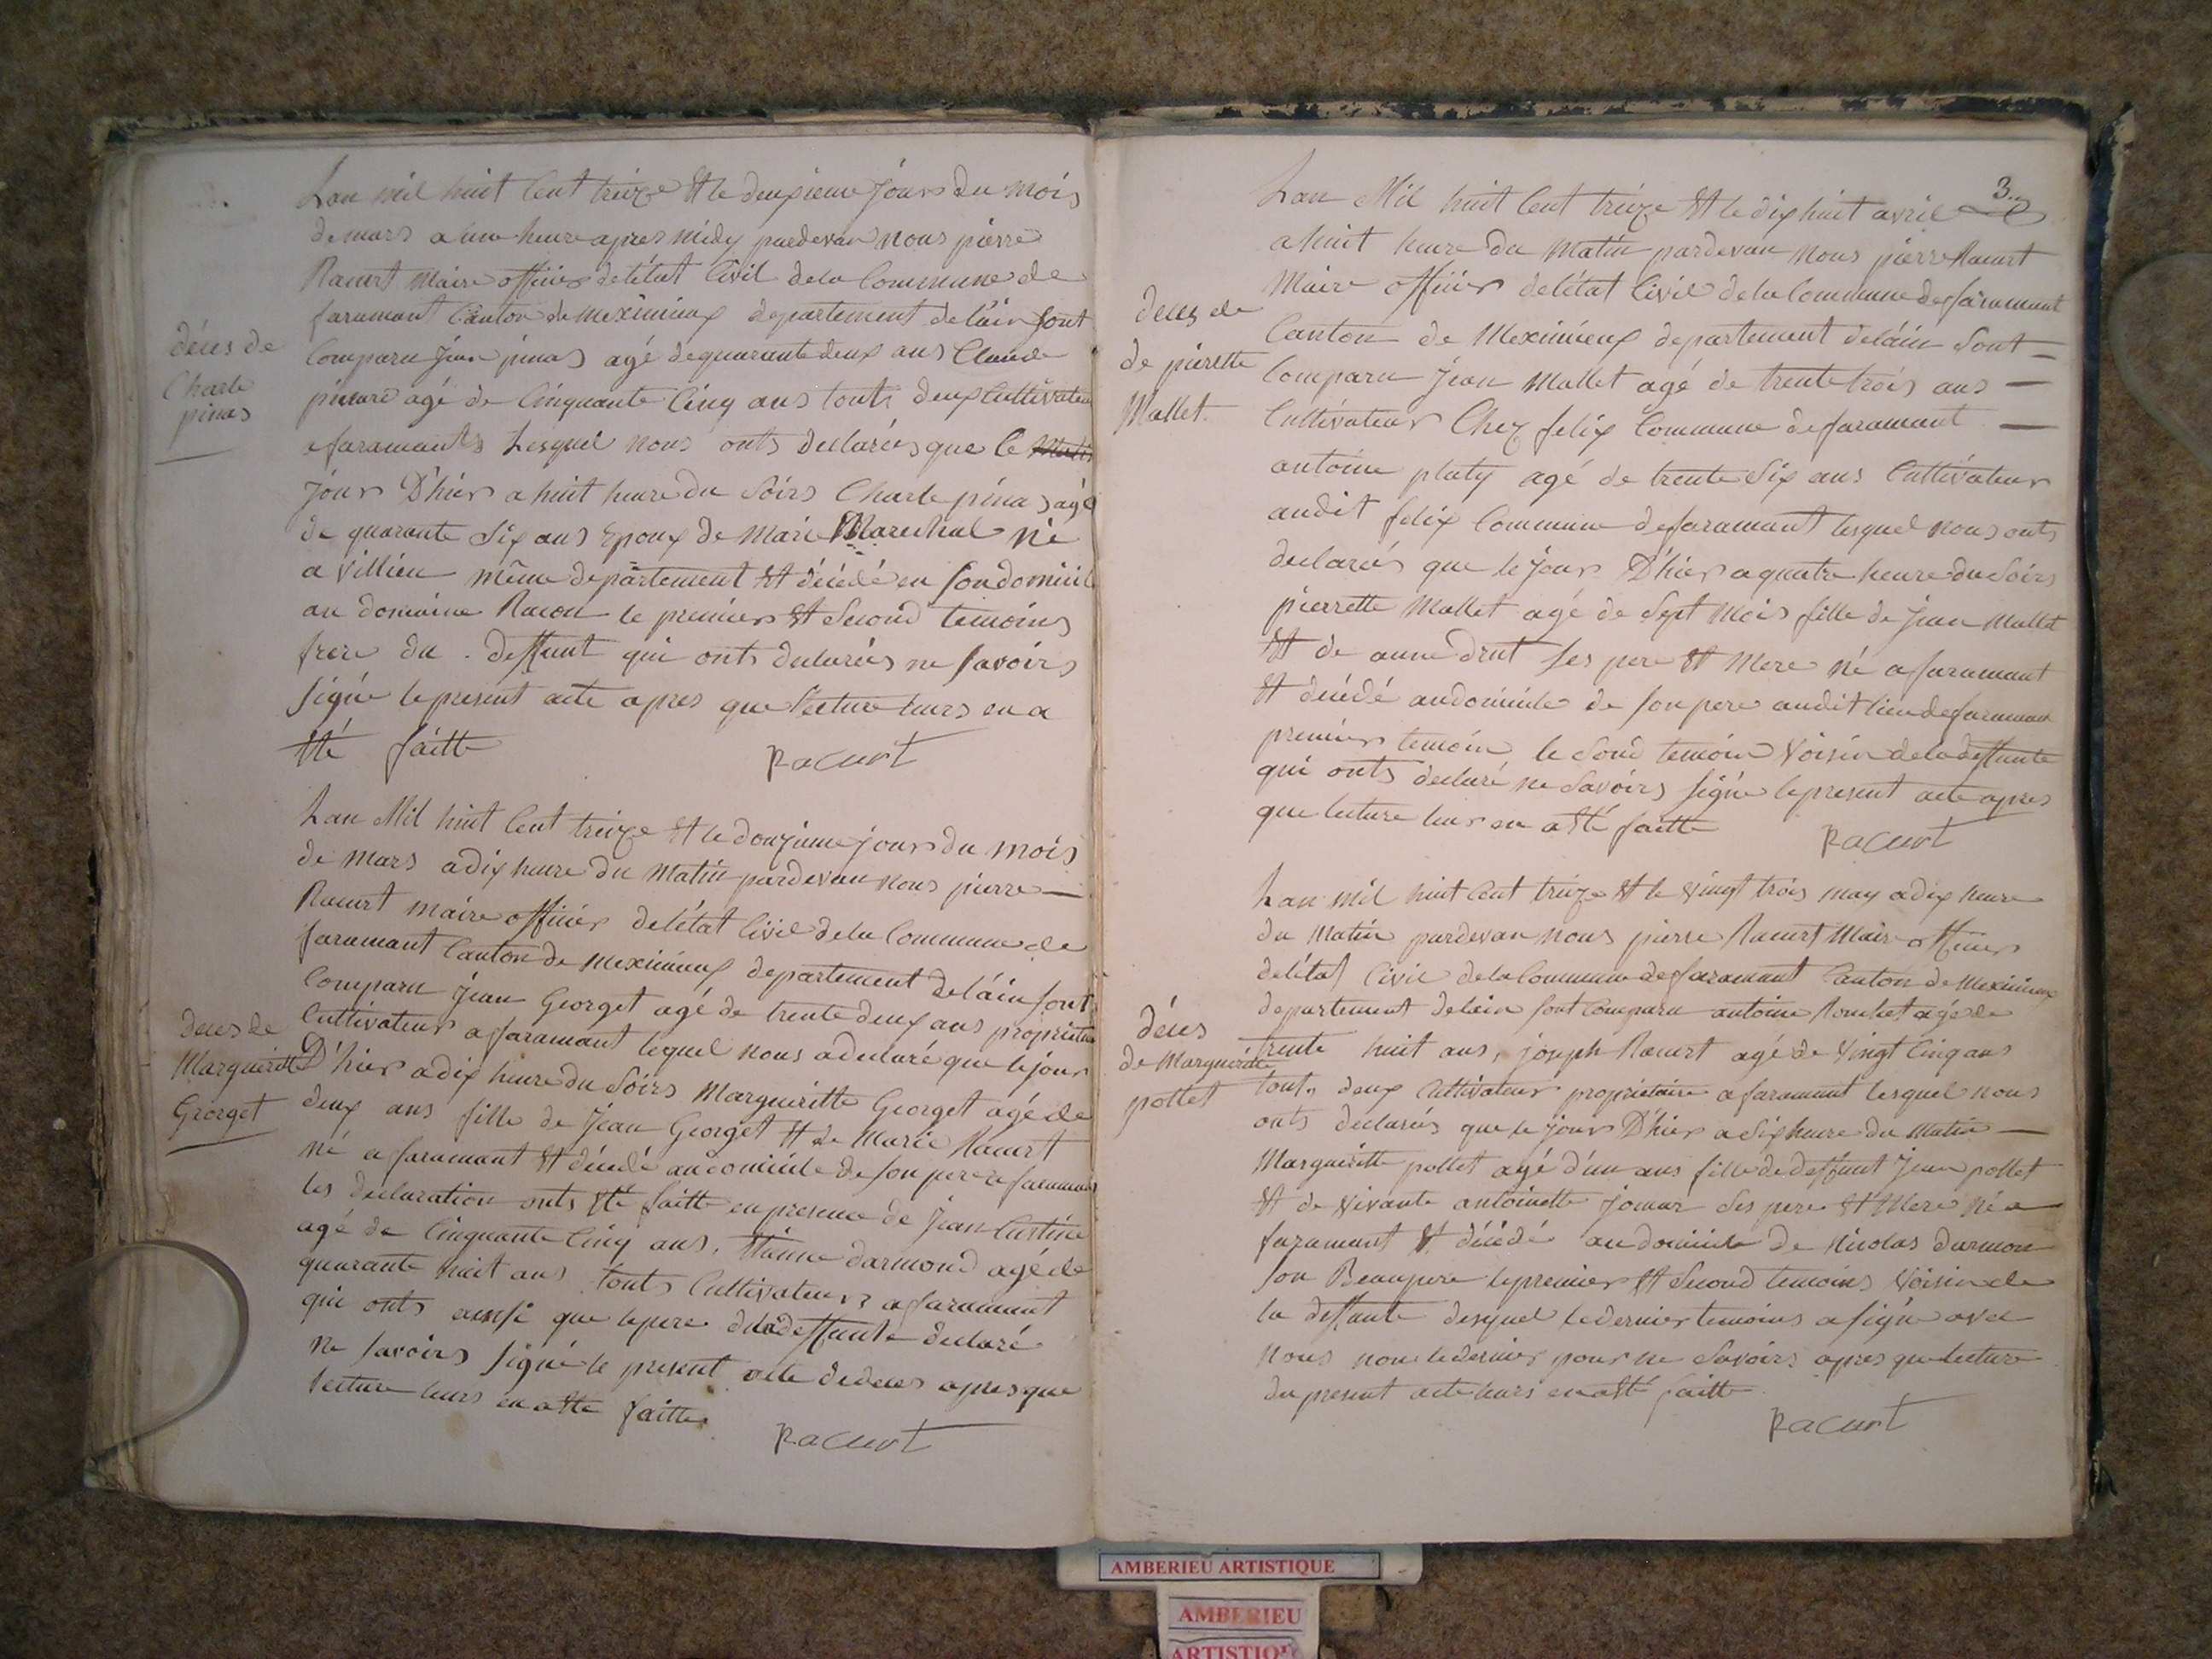 Lan mil huit Cent treize Et le deuxieme jours du mois
de mars a une heure apres midy pardevan nous pierre
Racurt Maire officier de l'état Civil de la Commune de
faramant Canton de meximieux departement de l'ain sont
Comparu jean pinas agé de quarante deux ans Claude
agé de Cinquante Cinq ans touts deux Cultivateur
a faramants Lesquel nous onts declarées que le
jour D'hier a huit heure du Soirs Charle pinas agé
de quarante Six ans Epoux de Marie Marechal né
a villieu même departement Et décédé en son domicile
au domaine Racon le premier Et Second temoins
frere du deffunt qui onts declarées ne savoirs
signé le present acte apres que lecture leurs en a
Eté faitte
Racurt
décés de
Charle
pinas
Lan Mil huit Cent treize Et le douzieme jours du mois
de Mars a dix heure du Matin pardevan nous pierre —
Racurt maire officier de l'état Civil de la Commune de
faramant Canton de meximieux departement de l'ain sont
Comparu jean Georget agé de trente deux ans proprietaire
Cultivateur a faramant lequel nous a declaré que le jour
D'hier a dix heure du Soirs Margueritte Georget agé de
deux ans fille de jean Georget Et de Marie Racurt
né a faramant Et décédé au domicile de son pere a faramant
les declaration onts Eté faitte en presence de jean
agé de Cinquante Cinq ans, Etienne darmond agé de
quarante huit ans touts Cultivateurs a faramant
qui onts ainsi que le pere de la deffunte declaré
ne savoirs signé le present acte de deces apres que
lecture leurs en a Eté faitte
Racurt
deces de
Margueritte
Georget
3
Lan Mil huit Cent treize Et le dix huit avril
a huit heure du Matin pardevan nous pierre Racurt
Maire officier de l'état Civil de la Commune de faramant
Canton de Meximieux departement de l'ain Sont —
Comparu jean Mallet agé de trente trois ans —
Cultivateur Chez felix Commune de faramant —
antoine platy agé de trente Six ans Cultivateur
audit felix Commune de faramant lesquel nous onts
declarées que le jour D'hier a quatre heure du Soirs
pierrette Mallet agé de Sept Mois fille de jean Mallet
Et de anne drut Ses pere Et Mere né a faramant
Et décédé au domicile de son pere audit lieu de faramant
premier temoin le Sond temoin Voisin de la deffunte
qui onts declaré ne Savoirs signé le present acte apres
que lecture leur en a Eté faitte
Racurt
deces de
de pierette
Mallet.
Lan mil huit Cent treize Et le vingt trois may a dix heure
du Matin pardevan nous pierre Racurt Maire officier
de l'état Civil de la Commune de faramant Canton de Meximieux
departement de l'ain sont Comparu antoine agé de
trente huit ans, joseph Racurt agé de vingt Cinq ans
tout, deux Cultivateur proprietaire a faramant lesquel nous
onts declarées que le jour D'hier a Six heure du Matin —
Margueritte pollet agé d'un ans fille de deffunt jean pollet
Et de vivante antoinette jomar Ses pere Et Mere né a
faramant Et décédé au domicile de Nicolas darmon
son Beaupere le premier Et Second temoins Voisin de
la deffunte desquel le dernier temoins a signé avec
nous non le dernier pour ne Savoirs apres que lecture
du present acte leurs en a Eté faitte
Racurt
décés
de Margueritte
pollet
AMBERIEU ARTISTIQUE
AMBERIEU